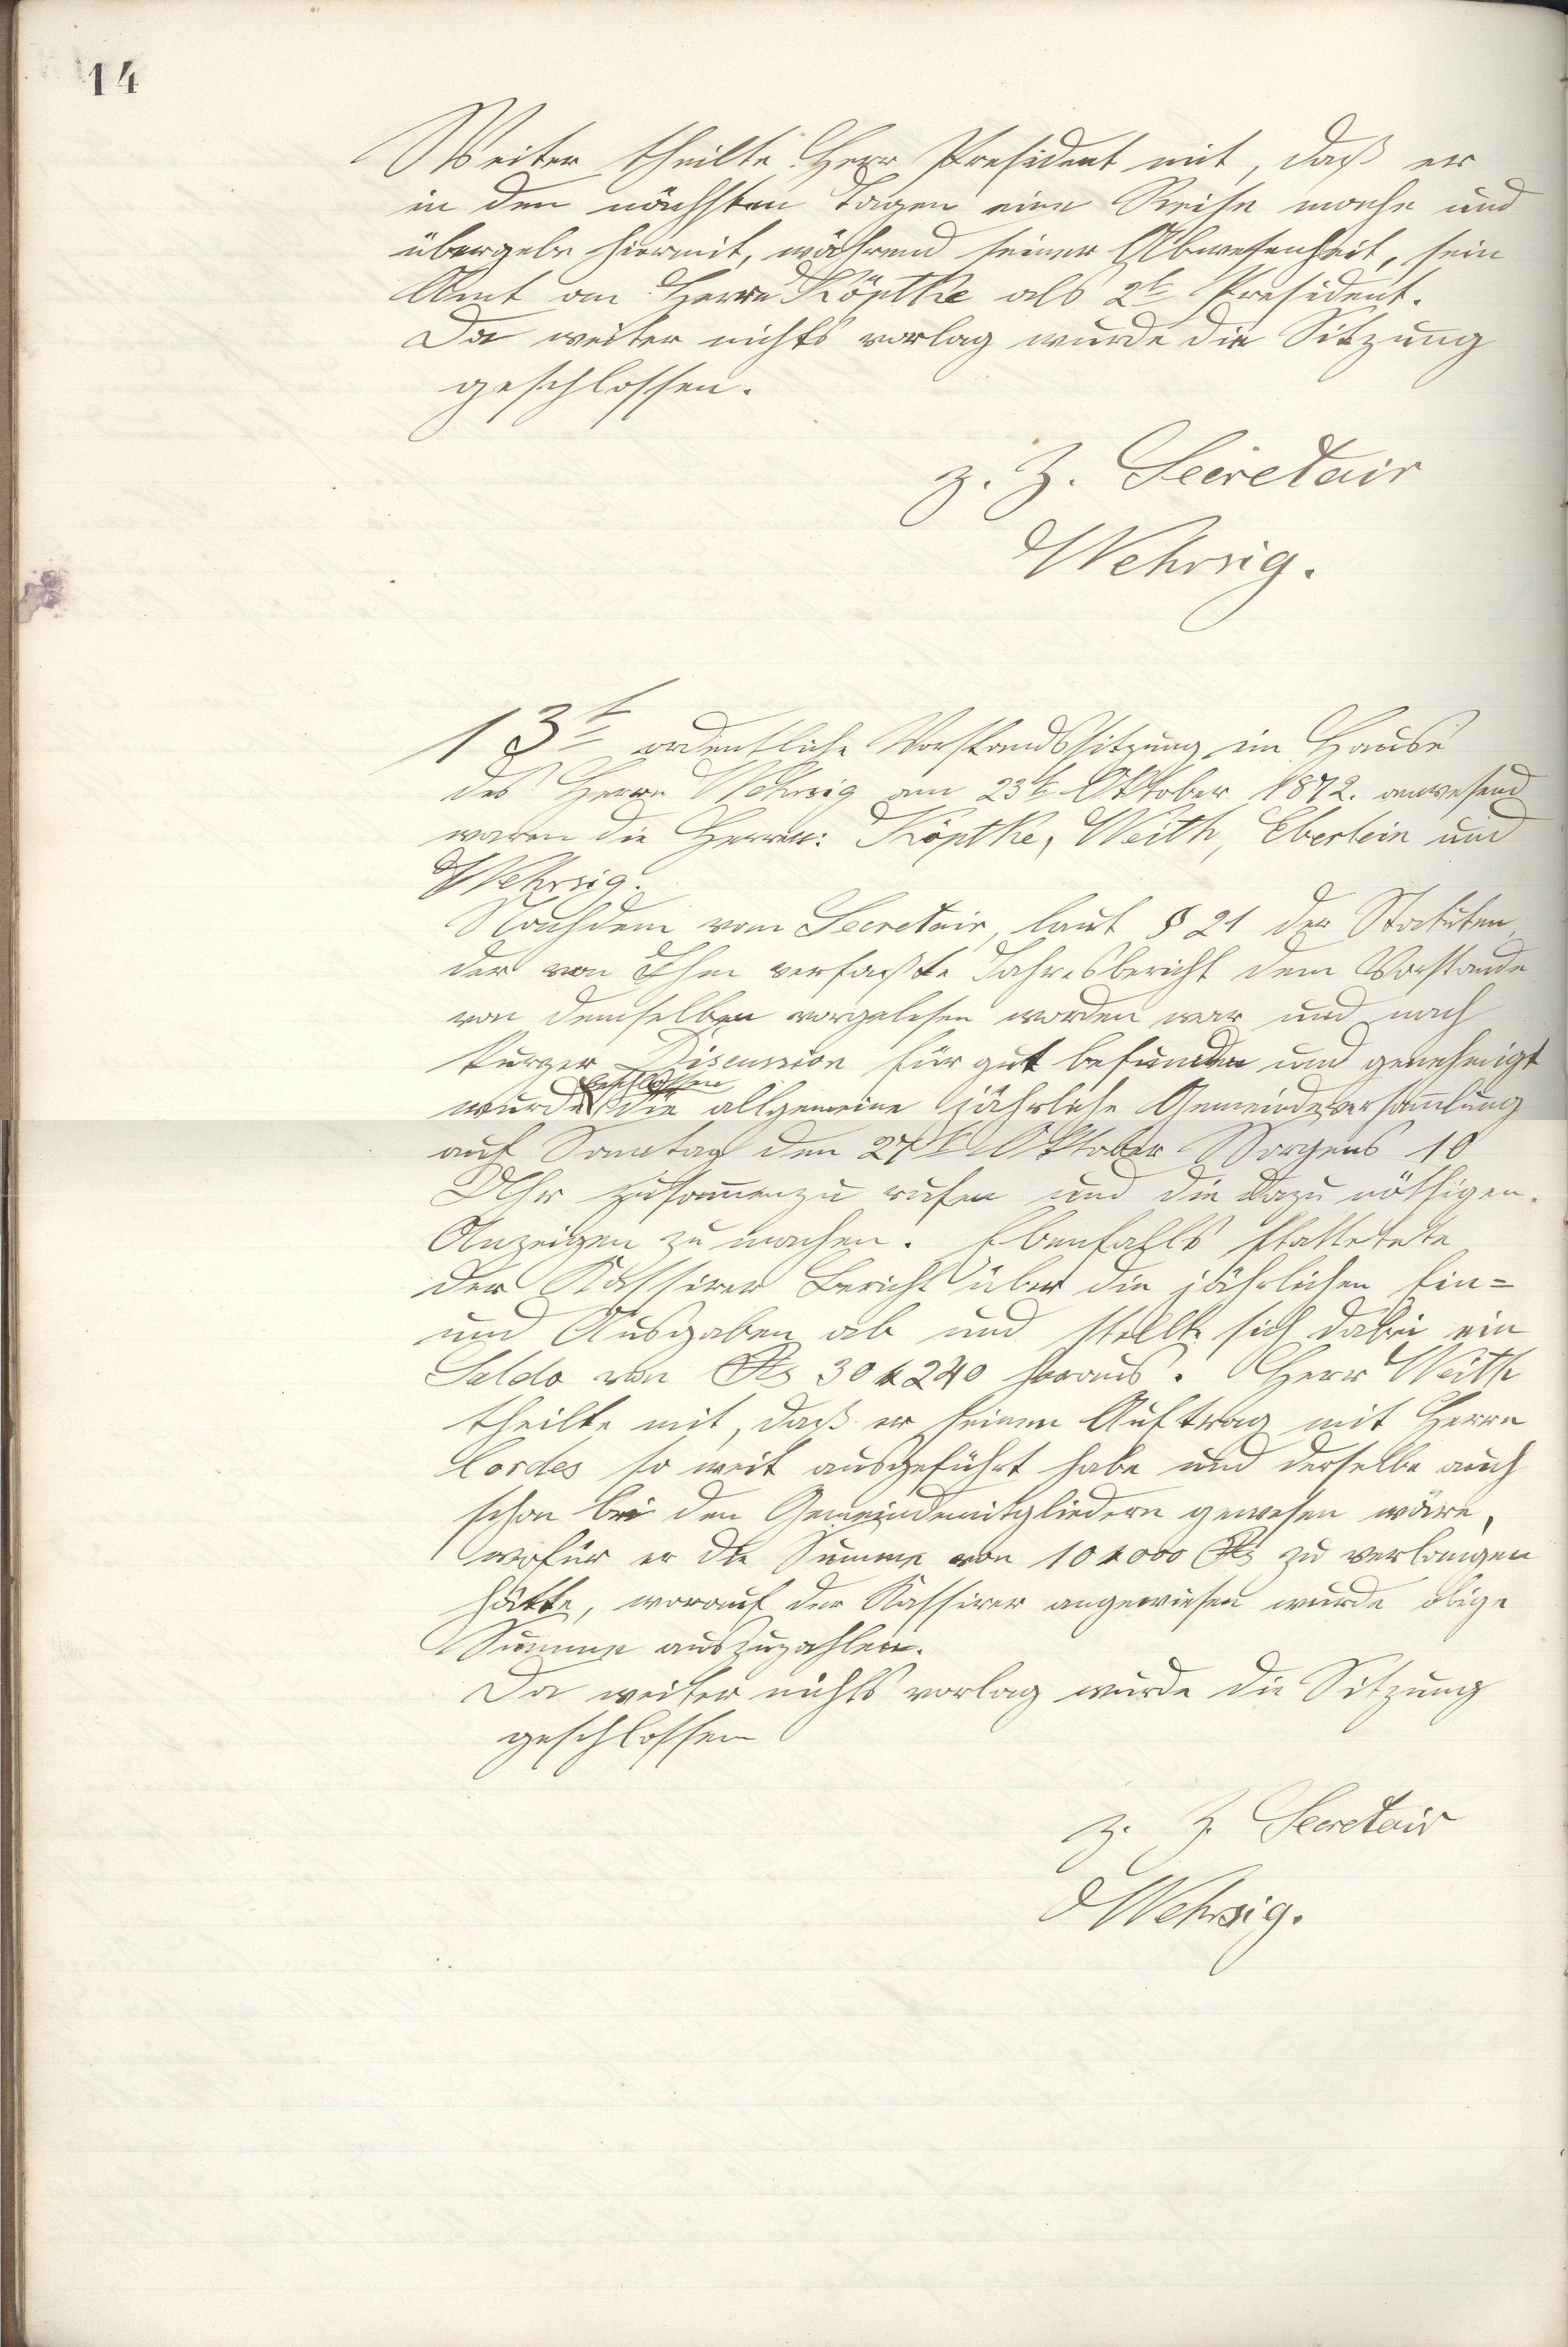 14
Weiter theilte Herr President mit, daß er
in den nächsten Tagen eine Reise mache und
übergebe hiermit, während seiner Abwesenheit, sein
Amt an Herrn Köptke als 2t President.
Da weiter nichts vorlag wurde die Sitzung
geschlossen.
z. Z. Secretair
Wehrsig.
13t ordentliche Vorstandssitzung im Hause
des Herrn Wehrsig am 23t Oktober 1872. anwesend
waren die Herren: Köptke, Weith, Eberlein und
Wehrsig.
Nachdem vom Secretair, laut § 21 der Statuten,
der von Ihm verfaßte Jahresbericht dem Vorstande
von demselben vorgelesen worden war und nach
kurzer Discussion für gut befunden und genehmigt
beschlossen
wurde die allgemeine jährliche Gemeindeversammlung
auf Sonntag den 27t Oktober Morgens 10
Uhr zusammenzu rufen und die dazu nöthigen
Anzeigen zu machen. Ebenfalls stattetete
der Kassirer Bericht über die jährlichen Ein=
und Ausgaben ab und stellte sich dabei ein
Saldo von Rs 30 240 heraus. Herr Weith
theilte mit, daß er seinen Auftrag mit Herrn
Cordes so weit ausgeführt habe und derselbe auch
schon bei den Gemeindemitgliedern gewesen wäre,
wofür er die Summe von 10 000 Rs zu verlangen
hätte, worauf der Kassirer angewiesen wurde obige
Summe auszuzahlen.
Da weiter nichts vorlag wurde die Sitzung
geschlossen
z. Z. Secretair
Wehrsig.